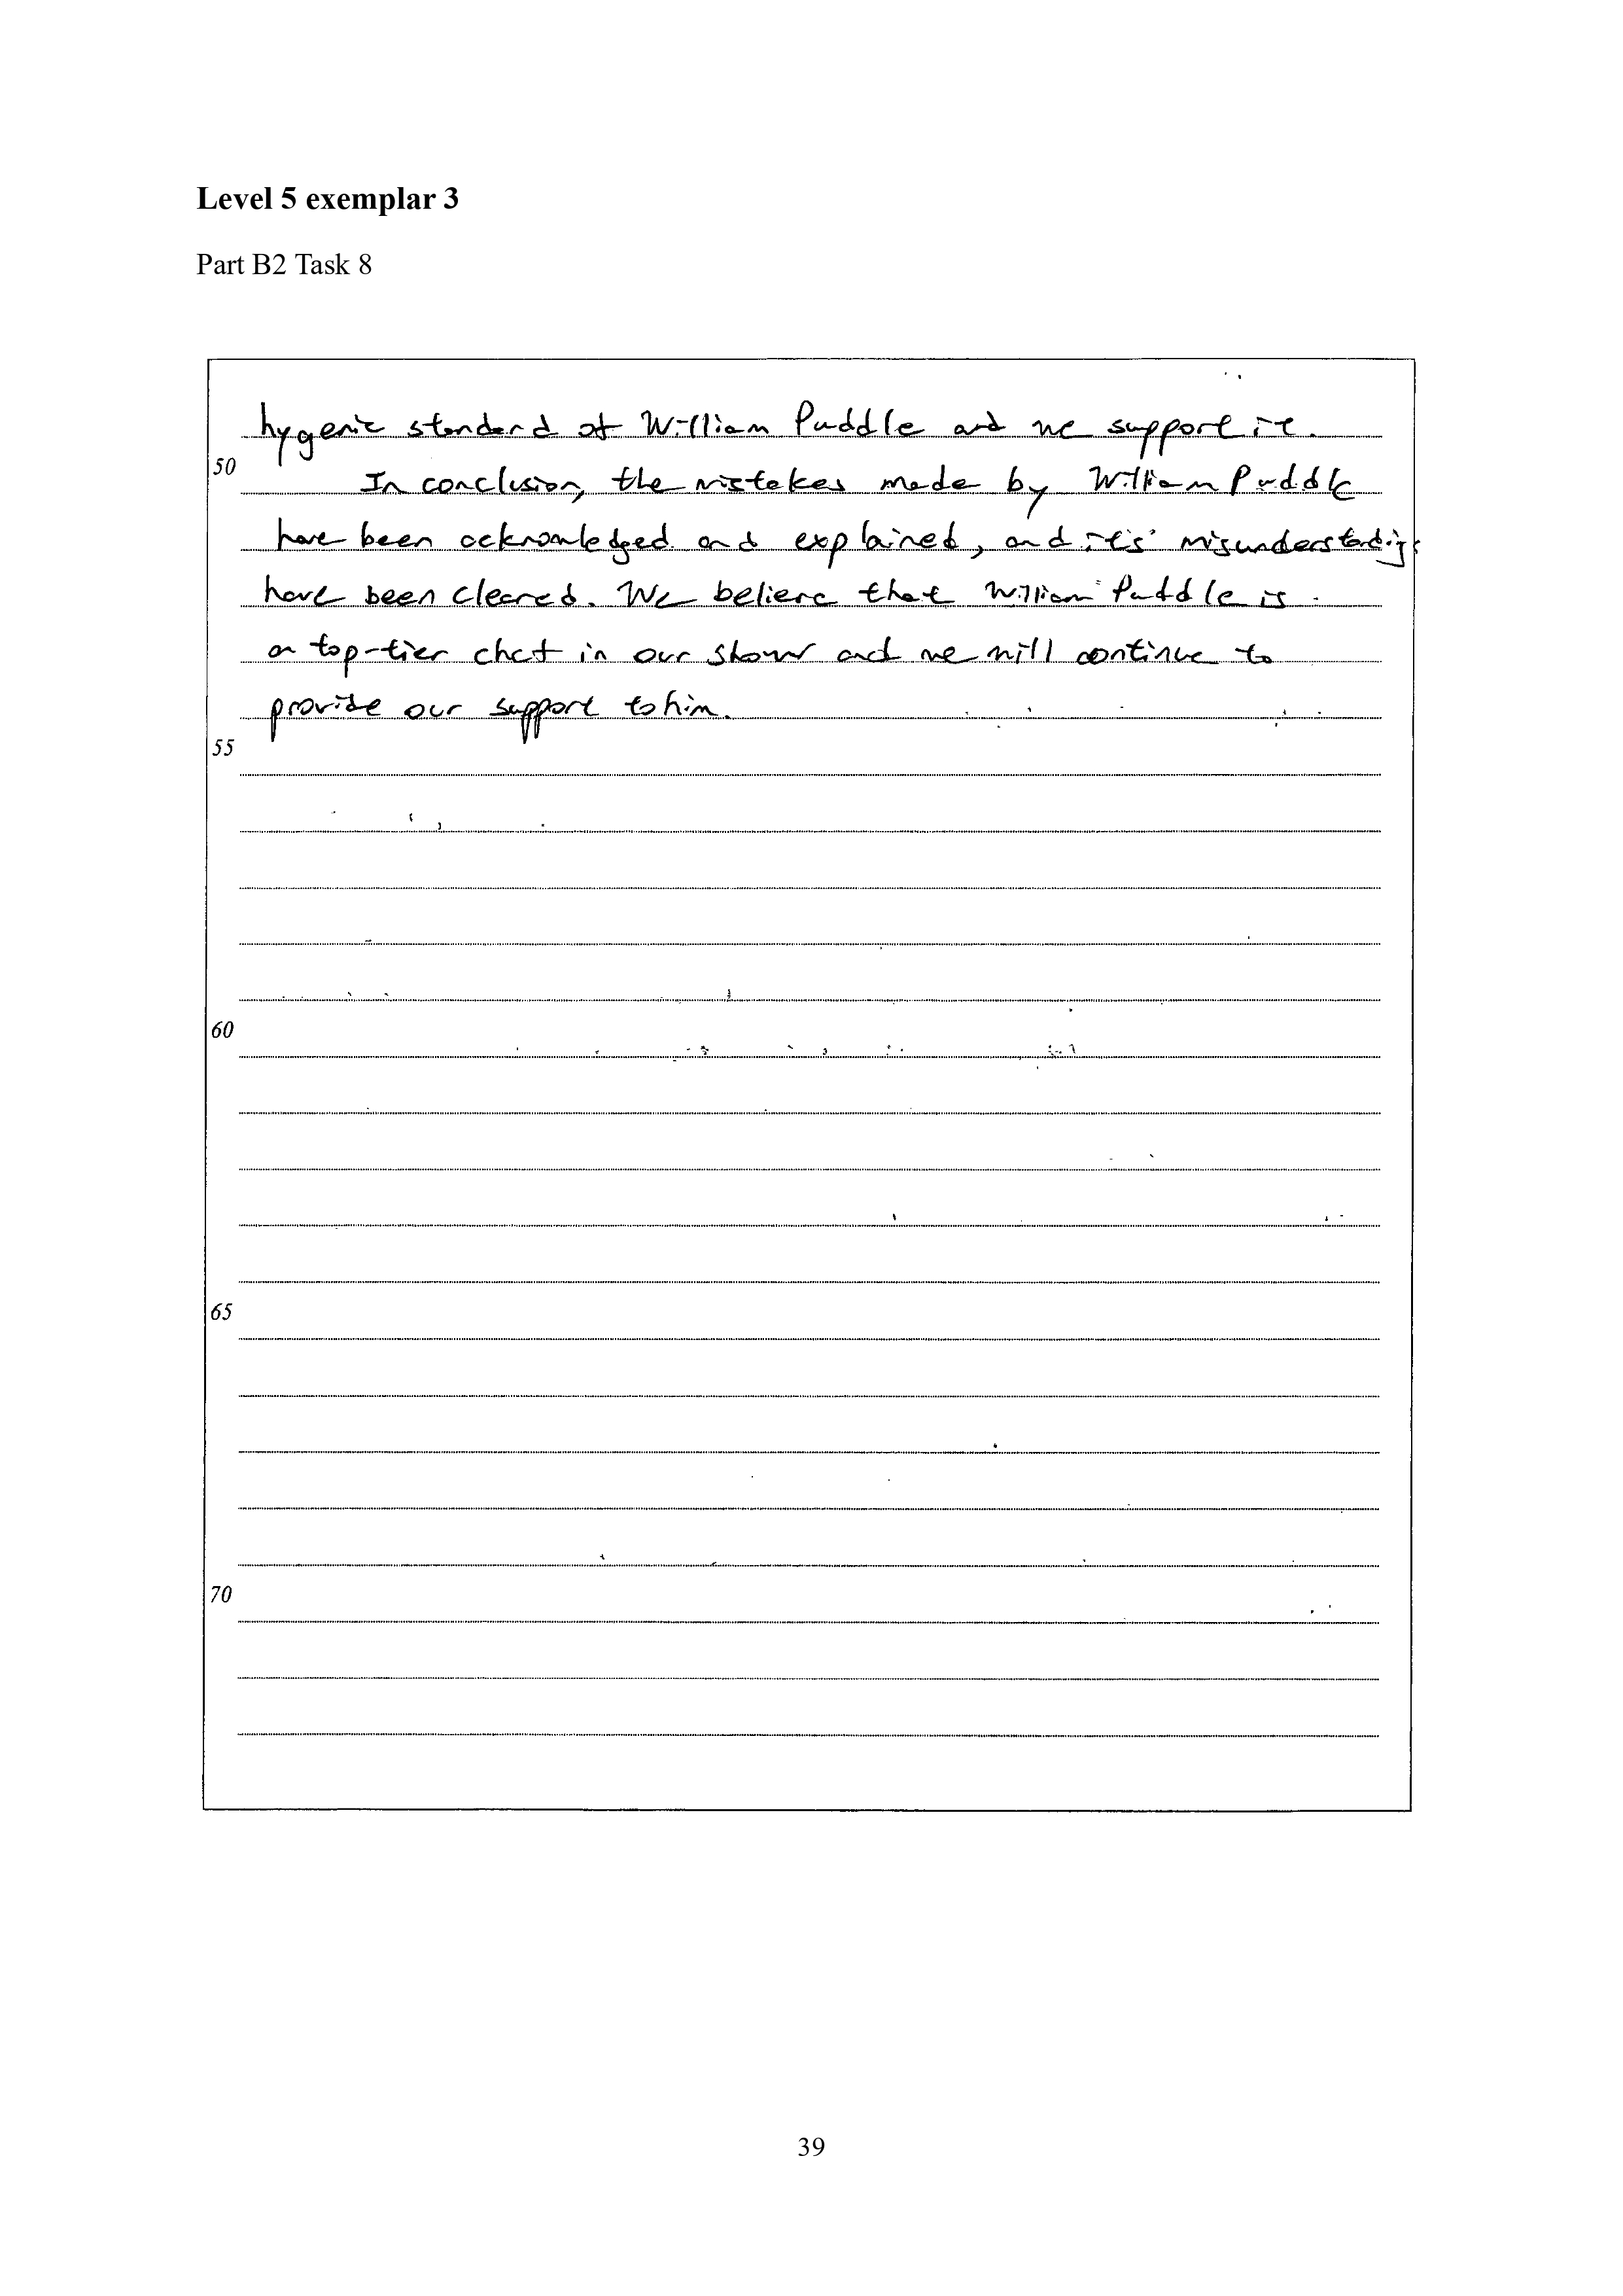 Level 5 exemplar 3
Part B2 Task 8
hygenic standard of William Puddle and we support it.
50
In conclusion, the mistakes made by William Puddle
have been acknowledged and explained, and its' misunderstandings
have been cleared. We believe that William Puddle is
a top-tier chef in our show and we will continue to
provide our support to him.
55
60
65
70
39